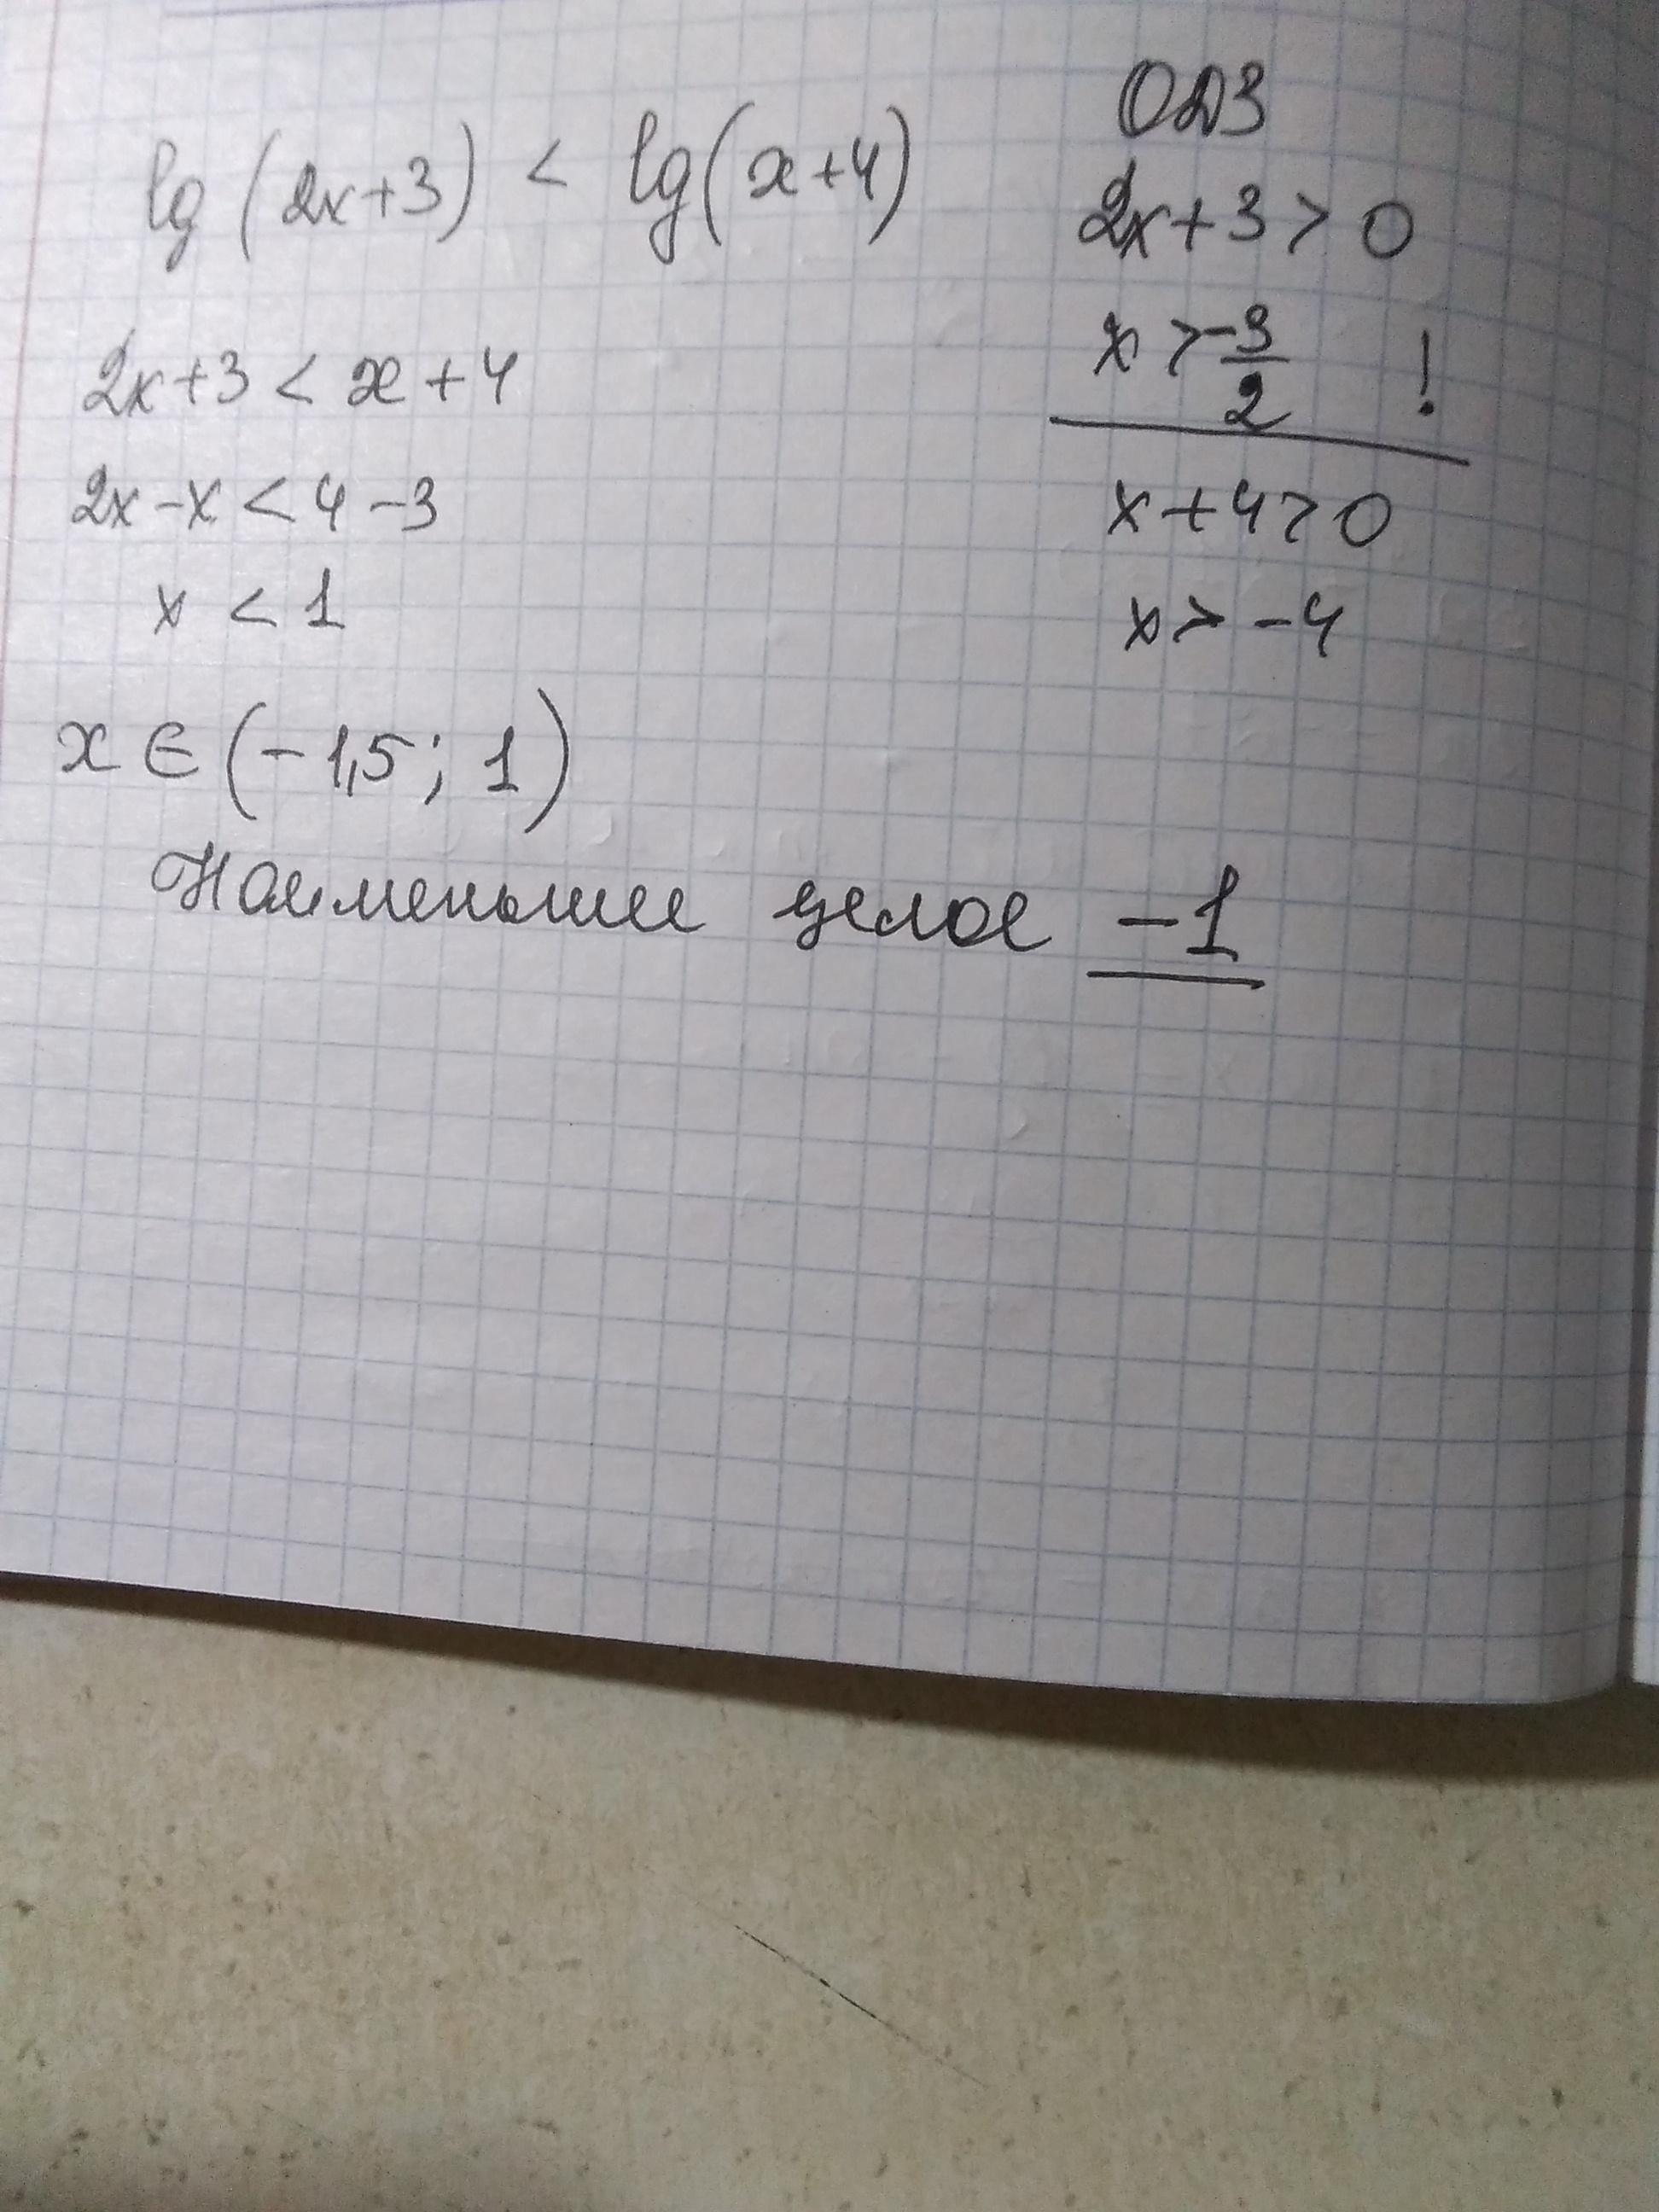 lg (2x+3) < lg(x+4)
2x+3 < x+4
2x-x < 4-3
x < 1
x ∈ (-1,5; 1)
Наименьшее целое -1
ОДЗ
2x+3 > 0
x > -3/2 !
x+4>0
x > -4